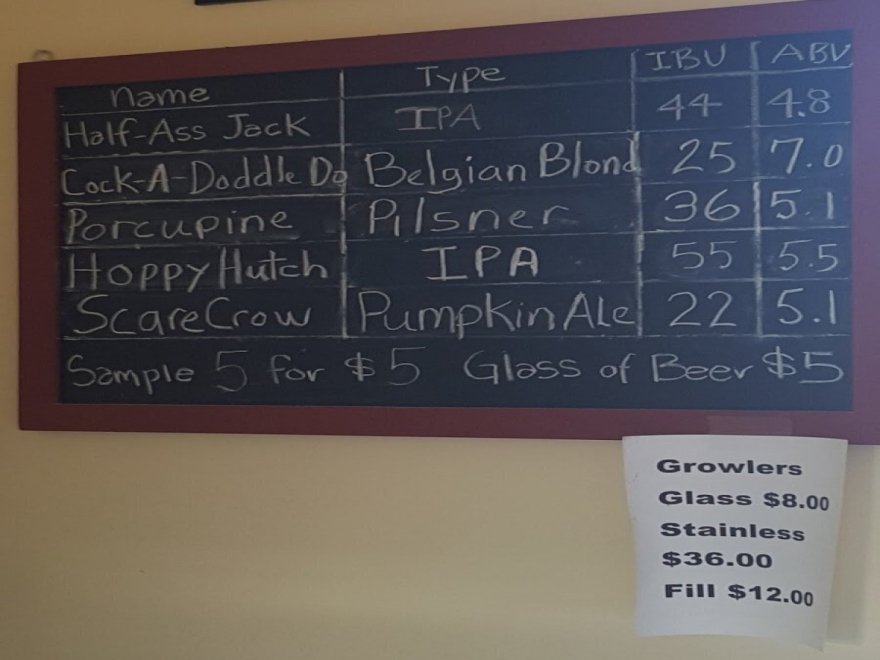 Name Type IBU ABV
Half-Ass Jack IPA 44 4.8
Cock-A-Doddle Do Belgian Blond 25 7.0
Porcupine Pilsner 36 5.1
Hoppy Hutch IPA 55 5.5
ScareCrow Pumpkin Ale 22 5.1
Sample 5 for $5 Glass of Beer $5
Growlers
Glass $8.00
Stainless
$36.00
Fill $12.00